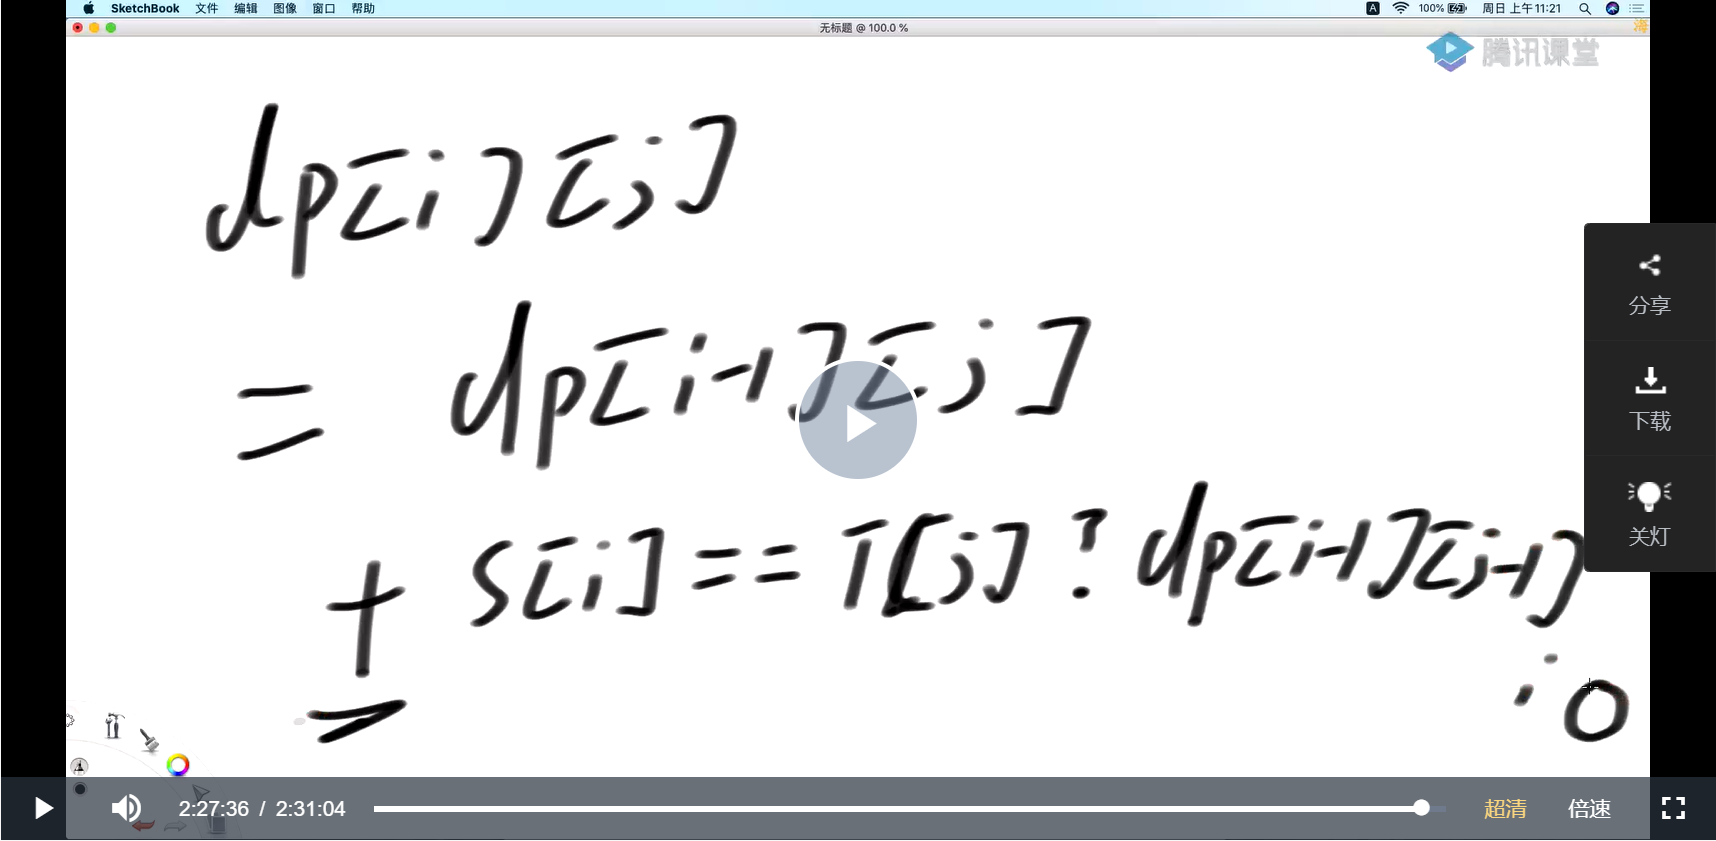 SketchBook 文件 编辑 图像 窗口 帮助 A 100% 周日 上午11:21
无标题 @ 100.0 %
海
腾讯课堂
dp[i][j]
= dp[i-1][j]
+ s[i] == T[j] ? dp[i-1][j-1]
: 0
分享
下载
关灯
2:27:36 / 2:31:04 超清 倍速